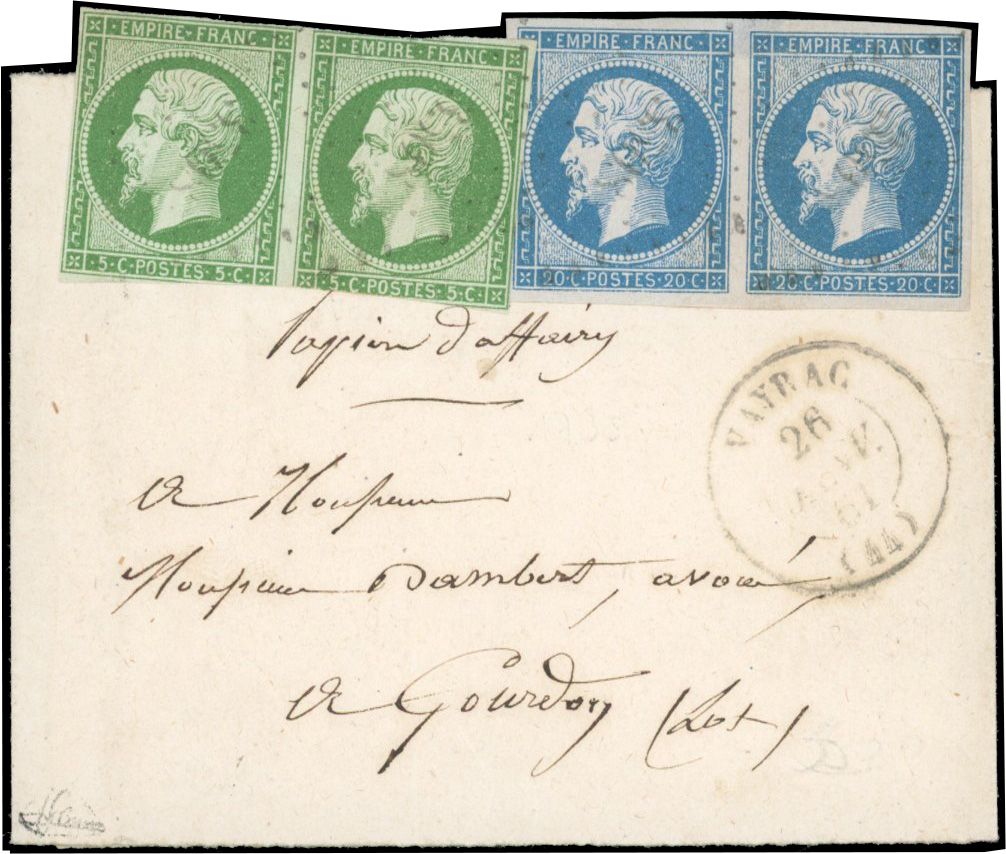 EMPIRE FRANC
EMPIRE FRANC
EMPIRE FRANC
EMPIRE FRANC
5·C·POSTES·5·C·
5·C·POSTES·5·C·
20·C·POSTES·20·C·
20·C·POSTES·20·C·
papier d'affaires
VAYRAC
26
JANV.
61
(44)
A Monsieur
Monsieur Dambert, avoué,
A Gourdon (Lot)